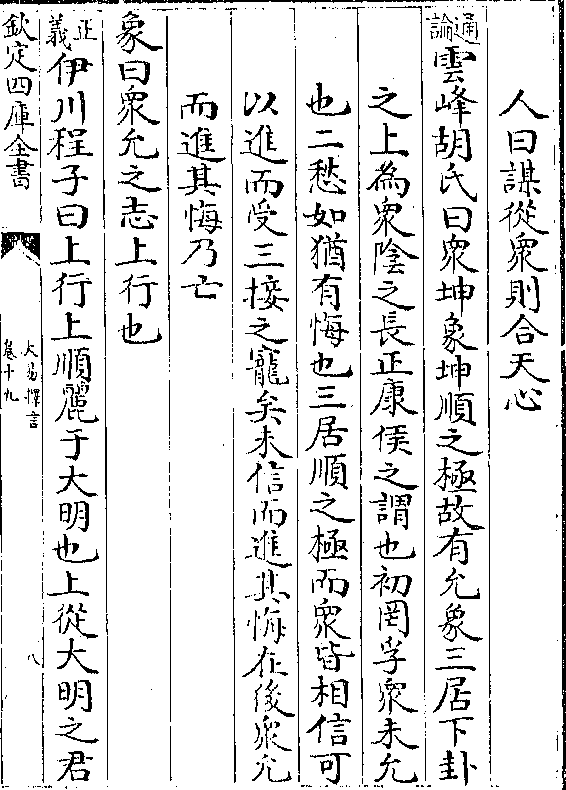 人曰謀從衆則合天心
通論雲峰胡氏曰衆坤象坤順之極故有允象三居下卦
之上為衆陰之長正康侯之謂也初罔孚衆未允
也二愁如猶有悔也三居順之極而衆皆相信可
以進而受三接之寵矣未信而進其悔在後衆允
而進其悔乃亡
象曰衆允之志上行也
正義伊川程子曰上行上順麗于大明也上從大明之君
欽定四庫全書
大易擇言
卷十九
八